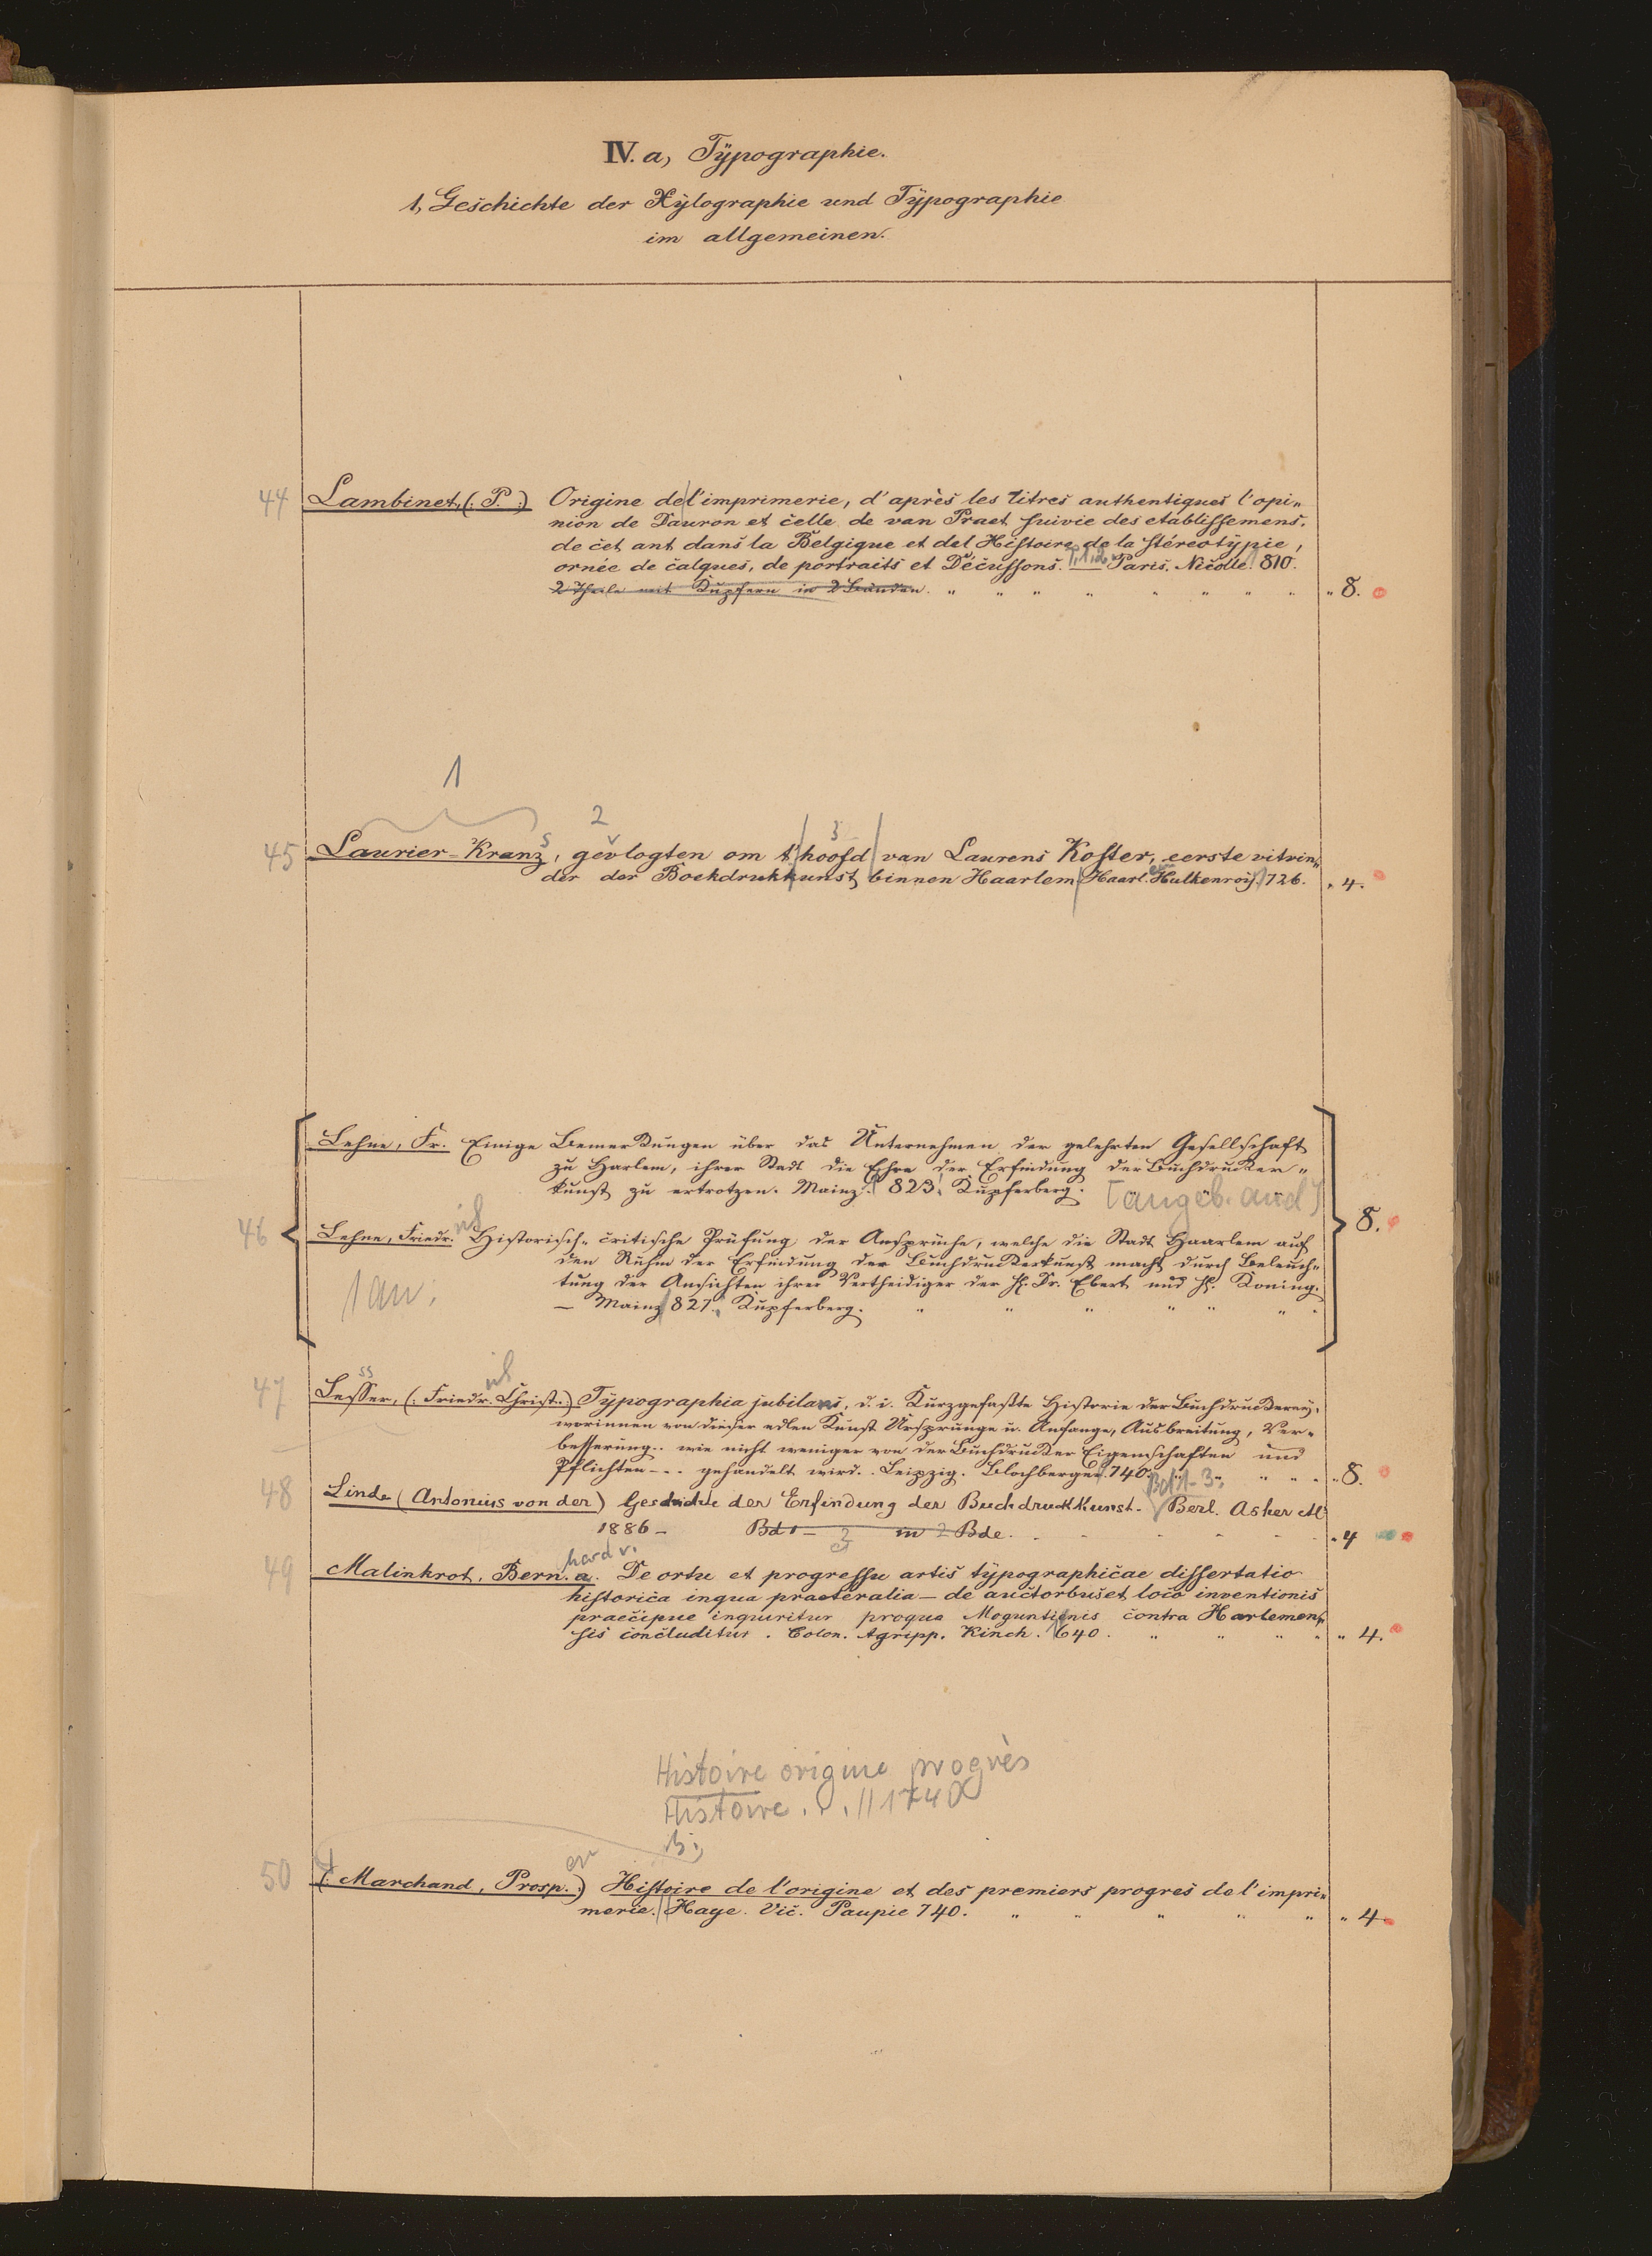 IV. a, Typographie.
1, Geschichte der Xylographie und Typographie
im allgemeinen.
44 Lambinet, (: P. :) Origine de l'imprimerie, d'après les titres authentiques l'opi„
nion de Dauron et celle de van Praet suivie des etablissemens.
de cet ant dans la Belgique et del Histoire de la stéreotypie,
ornée de calques, de portraits et Décussons. T. 1.2. — Paris. Nicolle. 1810.
2 Theile mit Kupfern in 2 Bänden. „ „ „ „ „ „ „ „ „ 8.
1
2
3
45 Laurier-Kranz, gevlogten om t' hoofd van Laurens Koster, eerste vitvin„
der der Boekdrukkunst binnen Haarlem Haarl. Hulkenroy. 726. „ 4.
Lehne, Fr. Einige Bemerkungen über das Unternehmen der gelehrten Gesellschaft
zu Harlem, ihrer Stadt die Ehre der Erfindung der Buchdrucker„
kunst zu ertrotzen. Mainz. 1823. Kupferberg. [angeb. and]
46 Lehne, Friedr. Historisch-critische Prüfung der Ansprüche, welche die Stadt Haarlem auf 8.
den Ruhm der Erfindung der Buchdruckerkunst macht durch Beleuch„
1 an: tung der Ansichten ihrer Vertheidiger der H. Dr. Ebert und H. Koning.
— Mainz 827. Kupferberg. „ „ „ „ „ „ „
47 Lesser, (: Friedr. Christ. :) Typographia jubilans, d. i. Kurzgefaßte Historie der Buchdruckerey,
worinnen von dieser edlen Kunst Ursprunge u. Anfange, Ausbreitung, Ver„
besserung.. wie nicht weniger von der Buchdrucker Eigenschaften und
Pflichten - - - gehandelt wird. Leipzig. Blochberger. 740. „ „ „ „ „ 8.
Bd 1-3.
48 Linde (Antonius von der) Geschichte der Erfindung der Buchdruckkunst. Berl. Asher
1886 - Bd 1 - 2 in 2 Bde. „ 4
hard v.
49 Malinkrot, Bern. a. De ortu et progressu artis typographicae dissertatio
historica inqua praeteralia — de auctorbus et loco inventionis
praecipue inquiritur proqua Moguntienis contra Harlemen„
sis concluditur. Colon. Agripp. Kinch. 1640. „ „ „ „ „ 4.
Histoire origine progrès
Histoire . . . // 1740
50 (: Marchand, Prosp. :) Histoire de l'origine et des premiers progres de l'impri„
merie. Haye. Vic. Paupie 740. „ „ „ „ „ „ 4